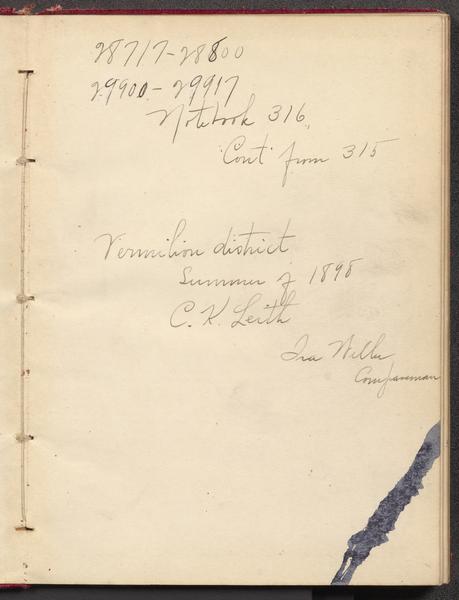 28717-28800
29900-29917
Notebook 316,
Cont from 315
Vermilion district
Summer of 1898
C. K. Leith
Ira
Compassman